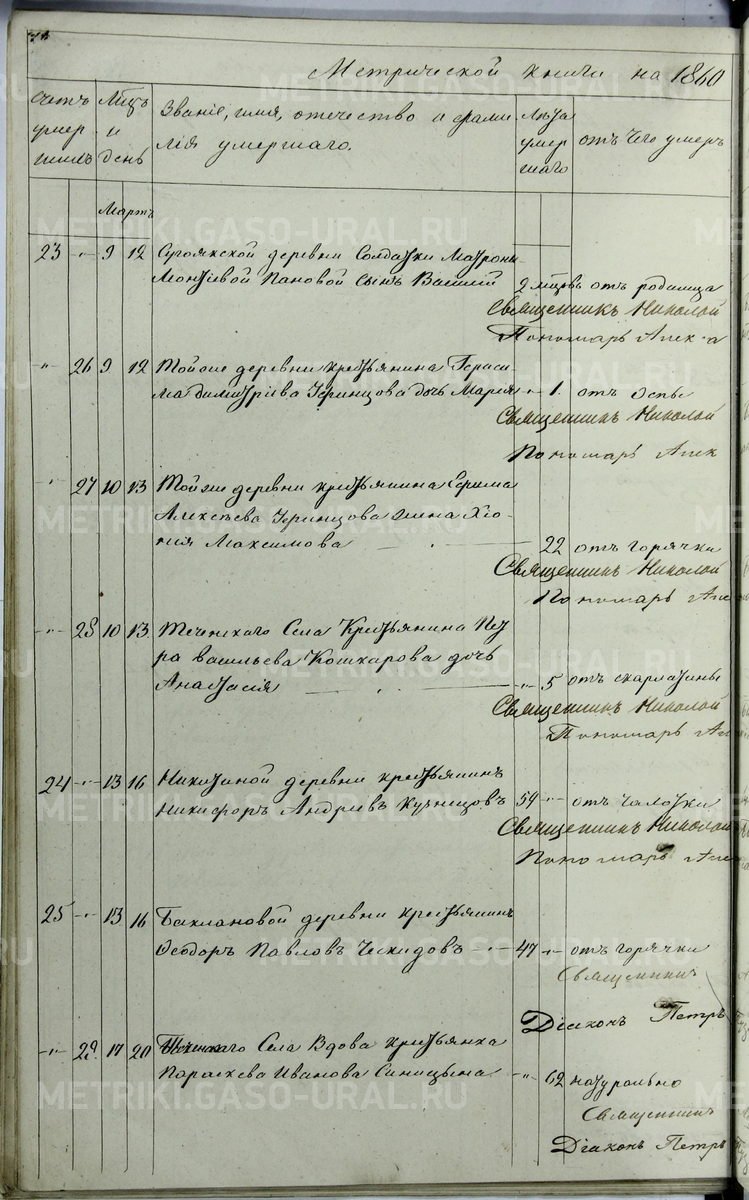 Метрической книги на 1860
Счетъ умер шихъ
Мѣцъ и день
Званіе, имя, отечество и фами лія умершаго.
Лѣта умер шаго
отъ чего умеръ
Мартъ
23 -"- 9 12 Сугоякской деревни Солдатки Матроны
Пановой сынъ Василій 2 мѣцовъ отъ родимца
Священникъ Николай
Пономарь Алек
-"- 26 9 12 Той же деревни крестьянина Гераси
ма Димитріева дочь Марія " 1. отъ оспы
Священникъ Николай
Пономарь Алек
-"- 27 10 13 Той же деревни крестьянина Ефима
Алексѣева жена Хіо-
нія Максимова 22 отъ горячки
Священникъ Николай
Пономарь Але
-"- 28 10 13 Теченскаго Села Крестьянина Пет
ра Васильева Кошкарова дочь
Анастасія -"- 5 отъ скарлатины
Священникъ Николай
Пономарь Ал
24 -"- 13 16 Никитиной деревни крестьянинъ
Никифоръ Андреевъ Кузнецовъ 54 -"- отъ чахотки
Священникъ Николай
Пономарь Але
25 -"- 13 16 Баклановой деревни крестьянинъ
Ѳеодоръ Павловъ Ческидовъ 47 -"- отъ горячки
Священникъ
Діаконъ Петръ
-"- 29 17 20 Теченскаго Села Вдова крестьянка
Параскева Иванова Синицына -"- 62 натурально
Священникъ
Діаконъ Петръ
METRIKI.GASO-URAL.RU